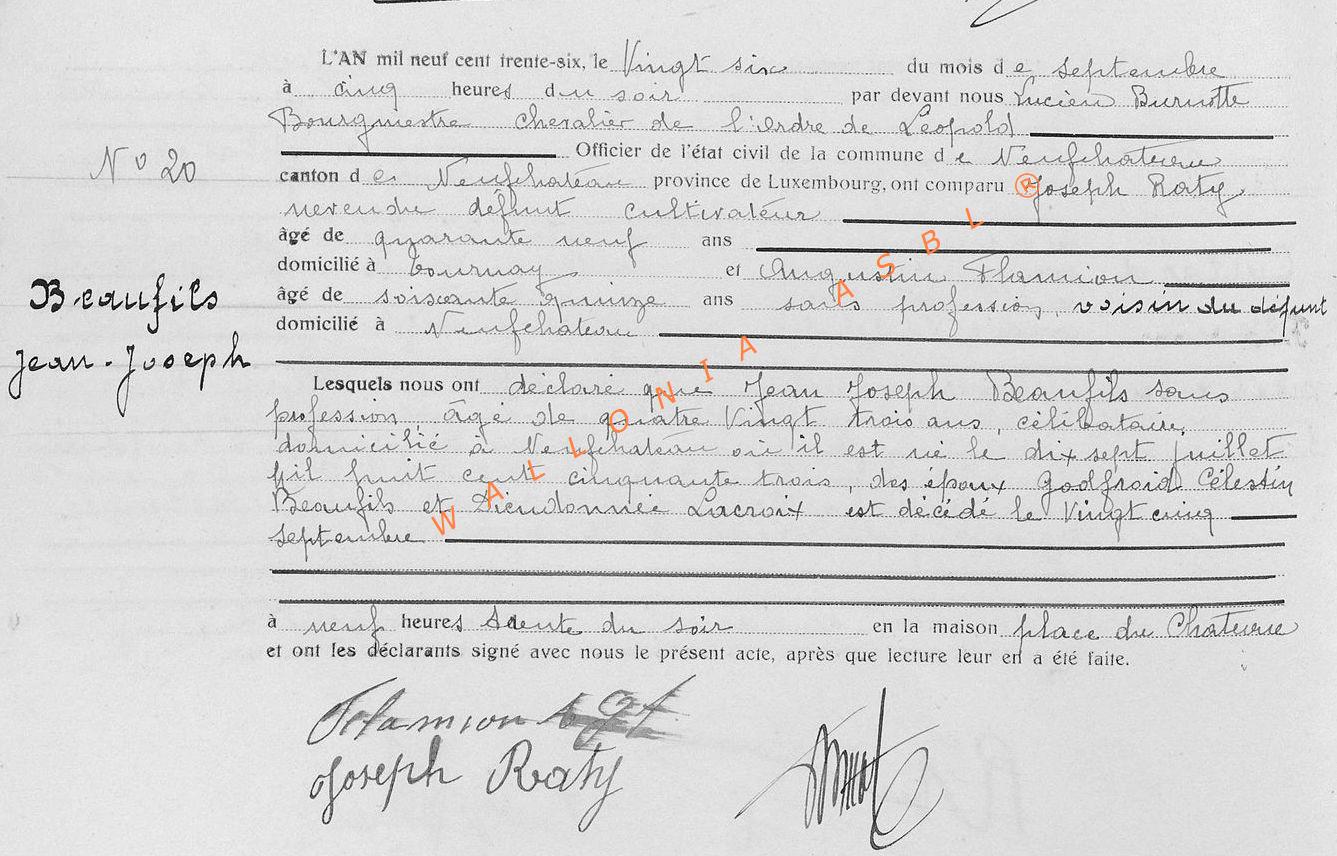 L'AN mil neuf cent trente-six, le Vingt six du mois de septembre
à cinq heures du soir par devant nous Lucien Burnotte
Bourgmestre Chevalier de l'Ordre de Léopold
Officier de l'état civil de la commune de Neufchateau
N° 20
canton de Neufchateau province de Luxembourg, ont comparu Joseph Raty
neveu du défunt cultivateur
âgé de quarante neuf ans
domicilié à Tournay et Augustin Flamion
Beaufils
Jean-Joseph
âgé de soixante quinze ans sans profession, voisin du défunt
domicilié à Neufchateau
Lesquels nous ont déclaré que Jean Joseph Beaufils sans
profession, âgé de quatre Vingt trois ans, célibataire,
domicilié à Neufchateau où il est né le dix sept juillet
mil huit cent cinquante trois, des époux Godfroid Célestin
Beaufils et Dieudonnée Lacroix est décédé le Vingt cinq
septembre
à neuf heures trente du soir en la maison place du Chateau
et ont les déclarants signé avec nous le présent acte, après que lecture leur en a été faite.
Flamion
Joseph Raty
WALLONIA ASBL ®